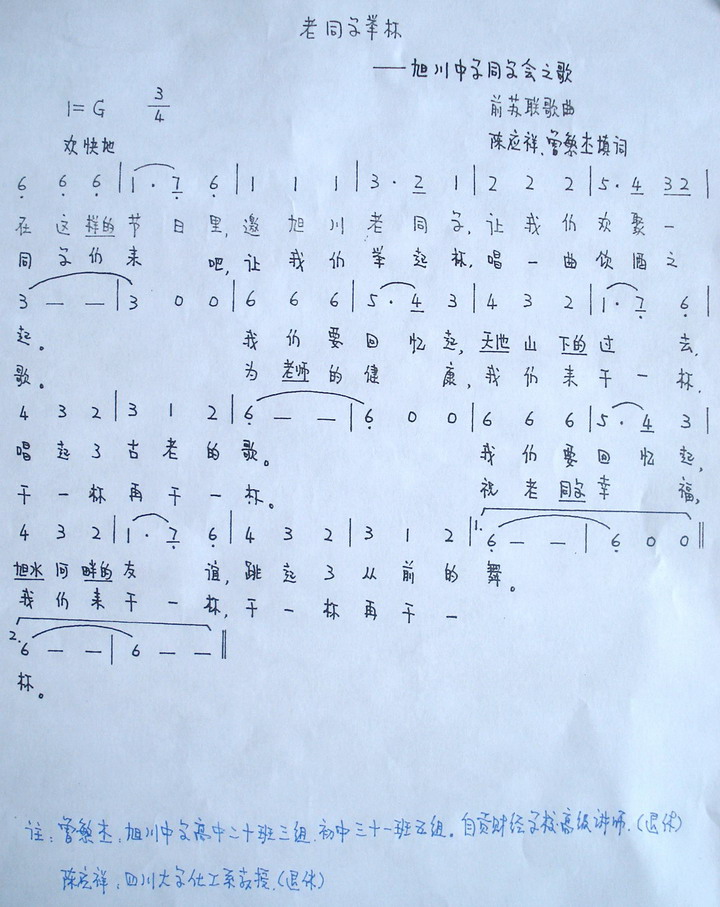 老同学举杯
——旭川中学同学会之歌
1=G 3/4 前苏联歌曲
欢快地 陈应祥、曾繁杰填词
6 6 6 | 1 · 7 6 | 1 1 1 | 3 · 2 1 | 2 2 2 | 5 · 4 32 |
在这样的节日里,邀旭川老同学,让我们欢聚一
同学们来吧,让我们举起杯,唱一曲饮酒之
3 — — | 3 0 0 | 6 6 6 | 5 · 4 3 | 4 3 2 | 1 · 7 6 |
起。我们要回忆起,天池山下的过去,
歌。为老师的健康,我们来干一杯,
4 3 2 | 3 1 2 | 6 — — | 6 0 0 | 6 6 6 | 5 · 4 3 |
唱起了古老的歌。我们要回忆起,
干一杯再干一杯。祝老同学幸福,
4 3 2 | 1 · 7 6 | 4 3 2 | 3 1 2 | 1. 6 — — | 6 0 0 ‖
旭水河畔的友谊,跳起了从前的舞。
我们来干一杯,干一杯再干一
2. 6 — — | 6 — — ‖
杯。
注:曾繁杰:旭川中学高中二十班三组.初中三十一班五组。自贡财经学校高级讲师.(退休)
陈应祥:四川大学化工系教授.(退休)